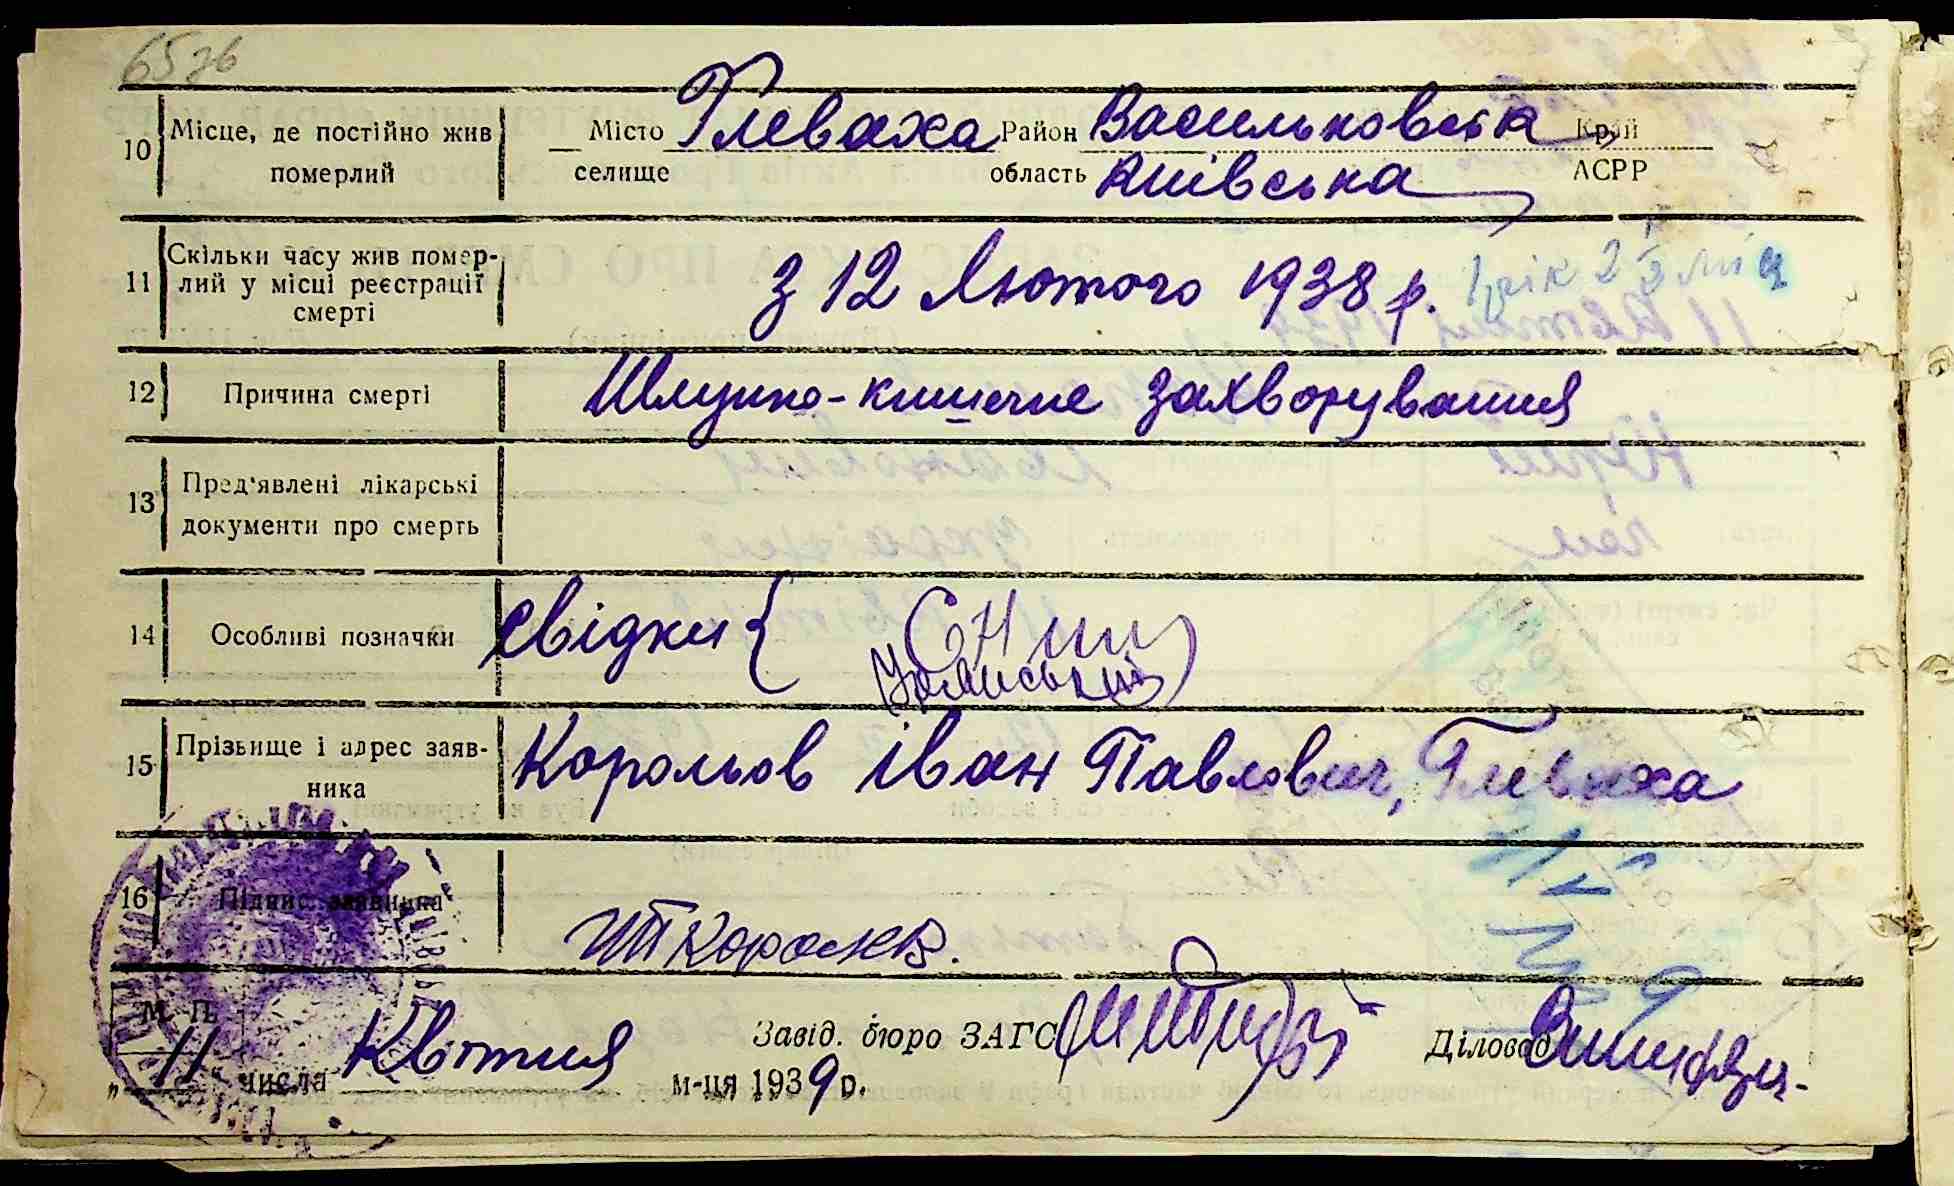 65зв
10 Місце, де постійно жив Місто Глеваха Район Васильковськ Край
померлий селище область Київська АСРР
11 Скільки часу жив помер-
лий у місці реєстрації з 12 Лютого 1938 р. 1 рік 2 міс
смерті
12 Причина смерті Шлунко-кишечне захворування
13 Пред'явлені лікарські
документи про смерть
14 Особливі позначки свідки {
15 Прізвище і адрес заяв- Корольов Іван Павлович, Глеваха
ника
16 Підпис заявника ИПКоролев.
М. П.
Завід. бюро ЗАГС Діловод
"11" числа Квітня м-ця 1939 р.